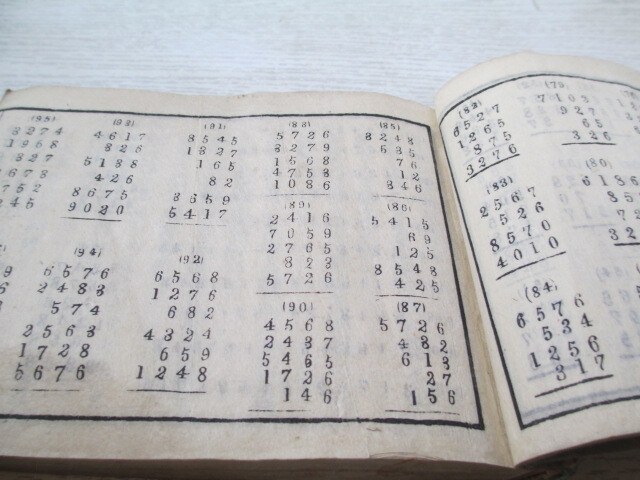 (79)
7103
927
65
326
(80)
6186
(82)
6527
1265
875
3276
(83)
2567
526
8570
4010
(84)
6576
534
1256
317
(85)
8248
76
12
846
(86)
5415
69
125
8548
425
(87)
5726
482
613
27
156
(88)
5726
8279
1568
4758
1086
(89)
2416
7059
2765
823
5726
(90)
4568
2437
5465
1726
146
(91)
8545
1827
165
82
8659
5417
(92)
6568
1276
682
4324
659
1248
(93)
4617
826
5188
426
8675
9020
(94)
6576
2483
574
2563
1728
5676
(95)
8274
1968
827